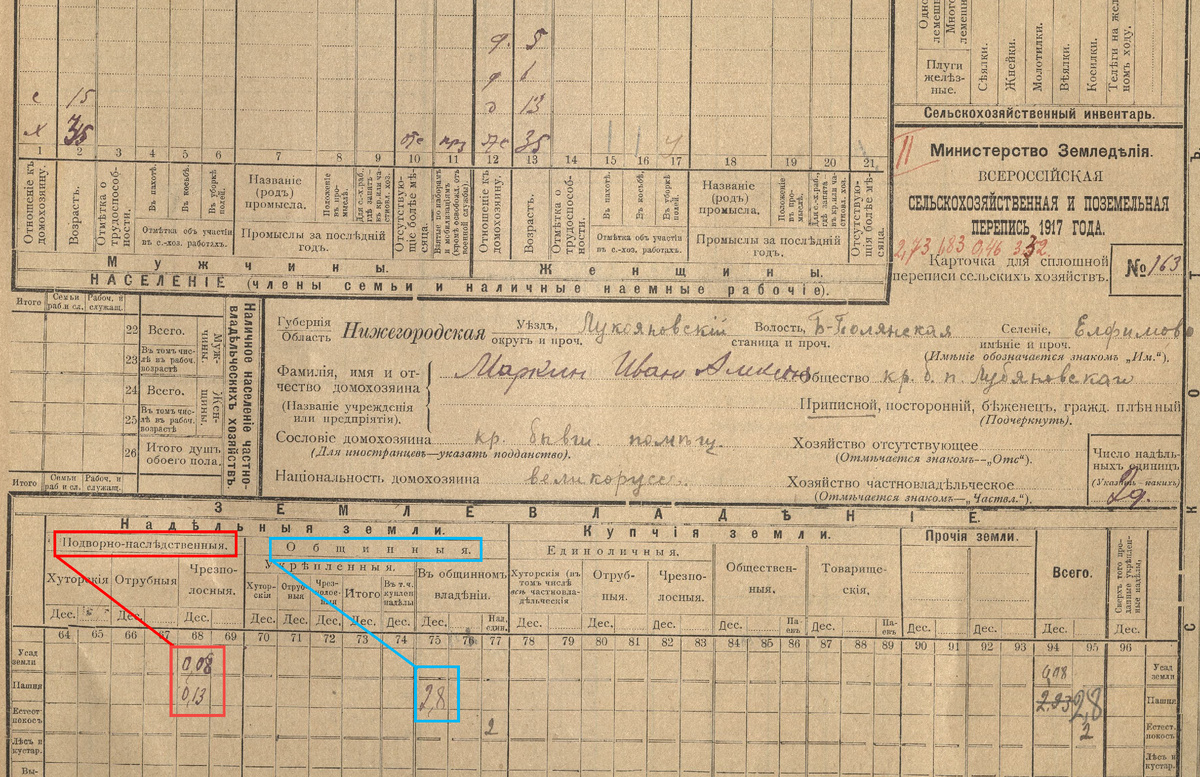 Одно-
лемешн.
Много-
лемешн.
Плуги
желѣз-
ные.
Сѣялки.
Жнейки.
Молотилки.
Вѣялки.
Косилки.
Телѣги на же-
номъ ходу.
Сельскохозяйственный инвентарь.
д. 5
д 6
с 15 д 13
35
1 2 3 4 5 6 7 8 9 10 11 12 13 14 15 16 17 18 19 20 21
Отношеніе къ
домохозяину.
Возрастъ.
Отмѣтка о
трудоспособ-
ности.
Въ пахотѣ.
Въ косьбѣ.
Въ уборкѣ
полей.
Отмѣтка объ участіи
въ с.-хоз. работахъ.
Названіе
(родъ)
промысла.
Положеніе
въ про-
мыслѣ.
Промыслы за послѣдній
годъ.
Отсутствую-
щіе болѣе мѣ-
сяца.
Отношеніе къ
домохозяину.
Возрастъ.
Отмѣтка о
трудоспособ-
ности.
Въ пахотѣ.
Въ косьбѣ.
Въ уборкѣ
полей.
Отмѣтка объ участіи
въ с.-хоз. работахъ.
Названіе
(родъ)
промысла.
Положеніе
въ про-
мыслѣ.
Промыслы за послѣдній
годъ.
Отсутствую-
щія болѣе мѣ-
сяца.
Мужчины. Женщины.
НАСЕЛЕНІЕ (члены семьи и наличные наемные рабочіе).
II Министерство Земледѣлія.
ВСЕРОССІЙСКАЯ
СЕЛЬСКОХОЗЯЙСТВЕННАЯ И ПОЗЕМЕЛЬНАЯ
ПЕРЕПИСЬ 1917 ГОДА.
Карточка для сплошной
переписи сельскихъ хозяйствъ.
№ 163
Итого
Семьи
раб и сл.
Рабоч. и
служащ.
22 Всего.
23 Въ томъ чис-
лѣ въ рабоч.
возрастѣ
Муж-
чины.
24 Всего.
25 Въ томъ чис-
лѣ въ рабоч.
возрастѣ
Жен-
щины.
26 Итого душъ
обоего пола.
Итого
Семьи
раб и сл.
Рабоч. и
служащ.
Наличное населеніе частно-
владѣльческихъ хозяйствъ
Губернія
Область Нижегородская
Уѣздъ, Лукояновскій
округъ и проч.
Волость, Б-Полянская
станица и проч.
Селеніе, Елфимово
имѣніе и проч.
(Имѣніе обозначается знакомъ „Им.“).
Фамилія, имя и от-
чество домохозяина
Маркин Иван
(Названіе учрежденія
или предпріятія).
Общество кр. б. п.
Приписной, посторонній, бѣженецъ, гражд. плѣнный
(Подчеркнуть).
Сословіе домохозяина кр. бывш. помѣщ.
(Для иностранцевъ—указать подданство).
Хозяйство отсутствующее
(Отмѣчается знакомъ—„Отс“).
Національность домохозяина великоруссъ.
Хозяйство частновладѣльческое
(Отмѣчается знакомъ—„Частвл.“).
Число надѣль-
ныхъ единицъ
(Указать—какихъ)
2д.
ЗЕМЛЕВЛАДѢНІЕ.
Надѣльныя земли. Купчія земли. Прочія земли.
Подворно-наслѣдственныя. Общинныя. Единоличныя.
Укрѣпленныя.
Хуторскія
Отрубныя
Чрезпо-
лосныя.
Хутор-
скія
Отруб-
ныя
Чрез-
полос-
ныя
Итого
Въ т.ч.
куплен.
надѣлы
Въ общинномъ
владѣніи.
Хуторскія (въ
томъ числѣ
всѣ частновла-
дѣльческія
Отруб-
ныя.
Чрезпо-
лосныя.
Обществен-
ныя.
Товарище-
скія.
Всего.
Сверхъ того про-
данные укрѣплен-
ные надѣлы,
Дес. Дес. Дес. Дес. Дес. Дес. Дес. Дес. Дес. Над. един. Дес. Дес. Дес. Дес. Па-евъ Дес. Па-евъ Дес. Дес. Дес. Дес.
64 65 66 67 68 69 70 71 72 73 74 75 76 77 78 79 80 81 82 83 84 85 86 87 88 89 90 91 92 93 94 95 96
Усад
земли 0,08 0,08 Усад
земли
Пашня 0,13 2,8 2,93 2,8 Пашня
Естест.
покосъ 2 2 Естест.
покосъ
Лѣсъ и
кустар. Лѣсъ и
кустар.
Вы-